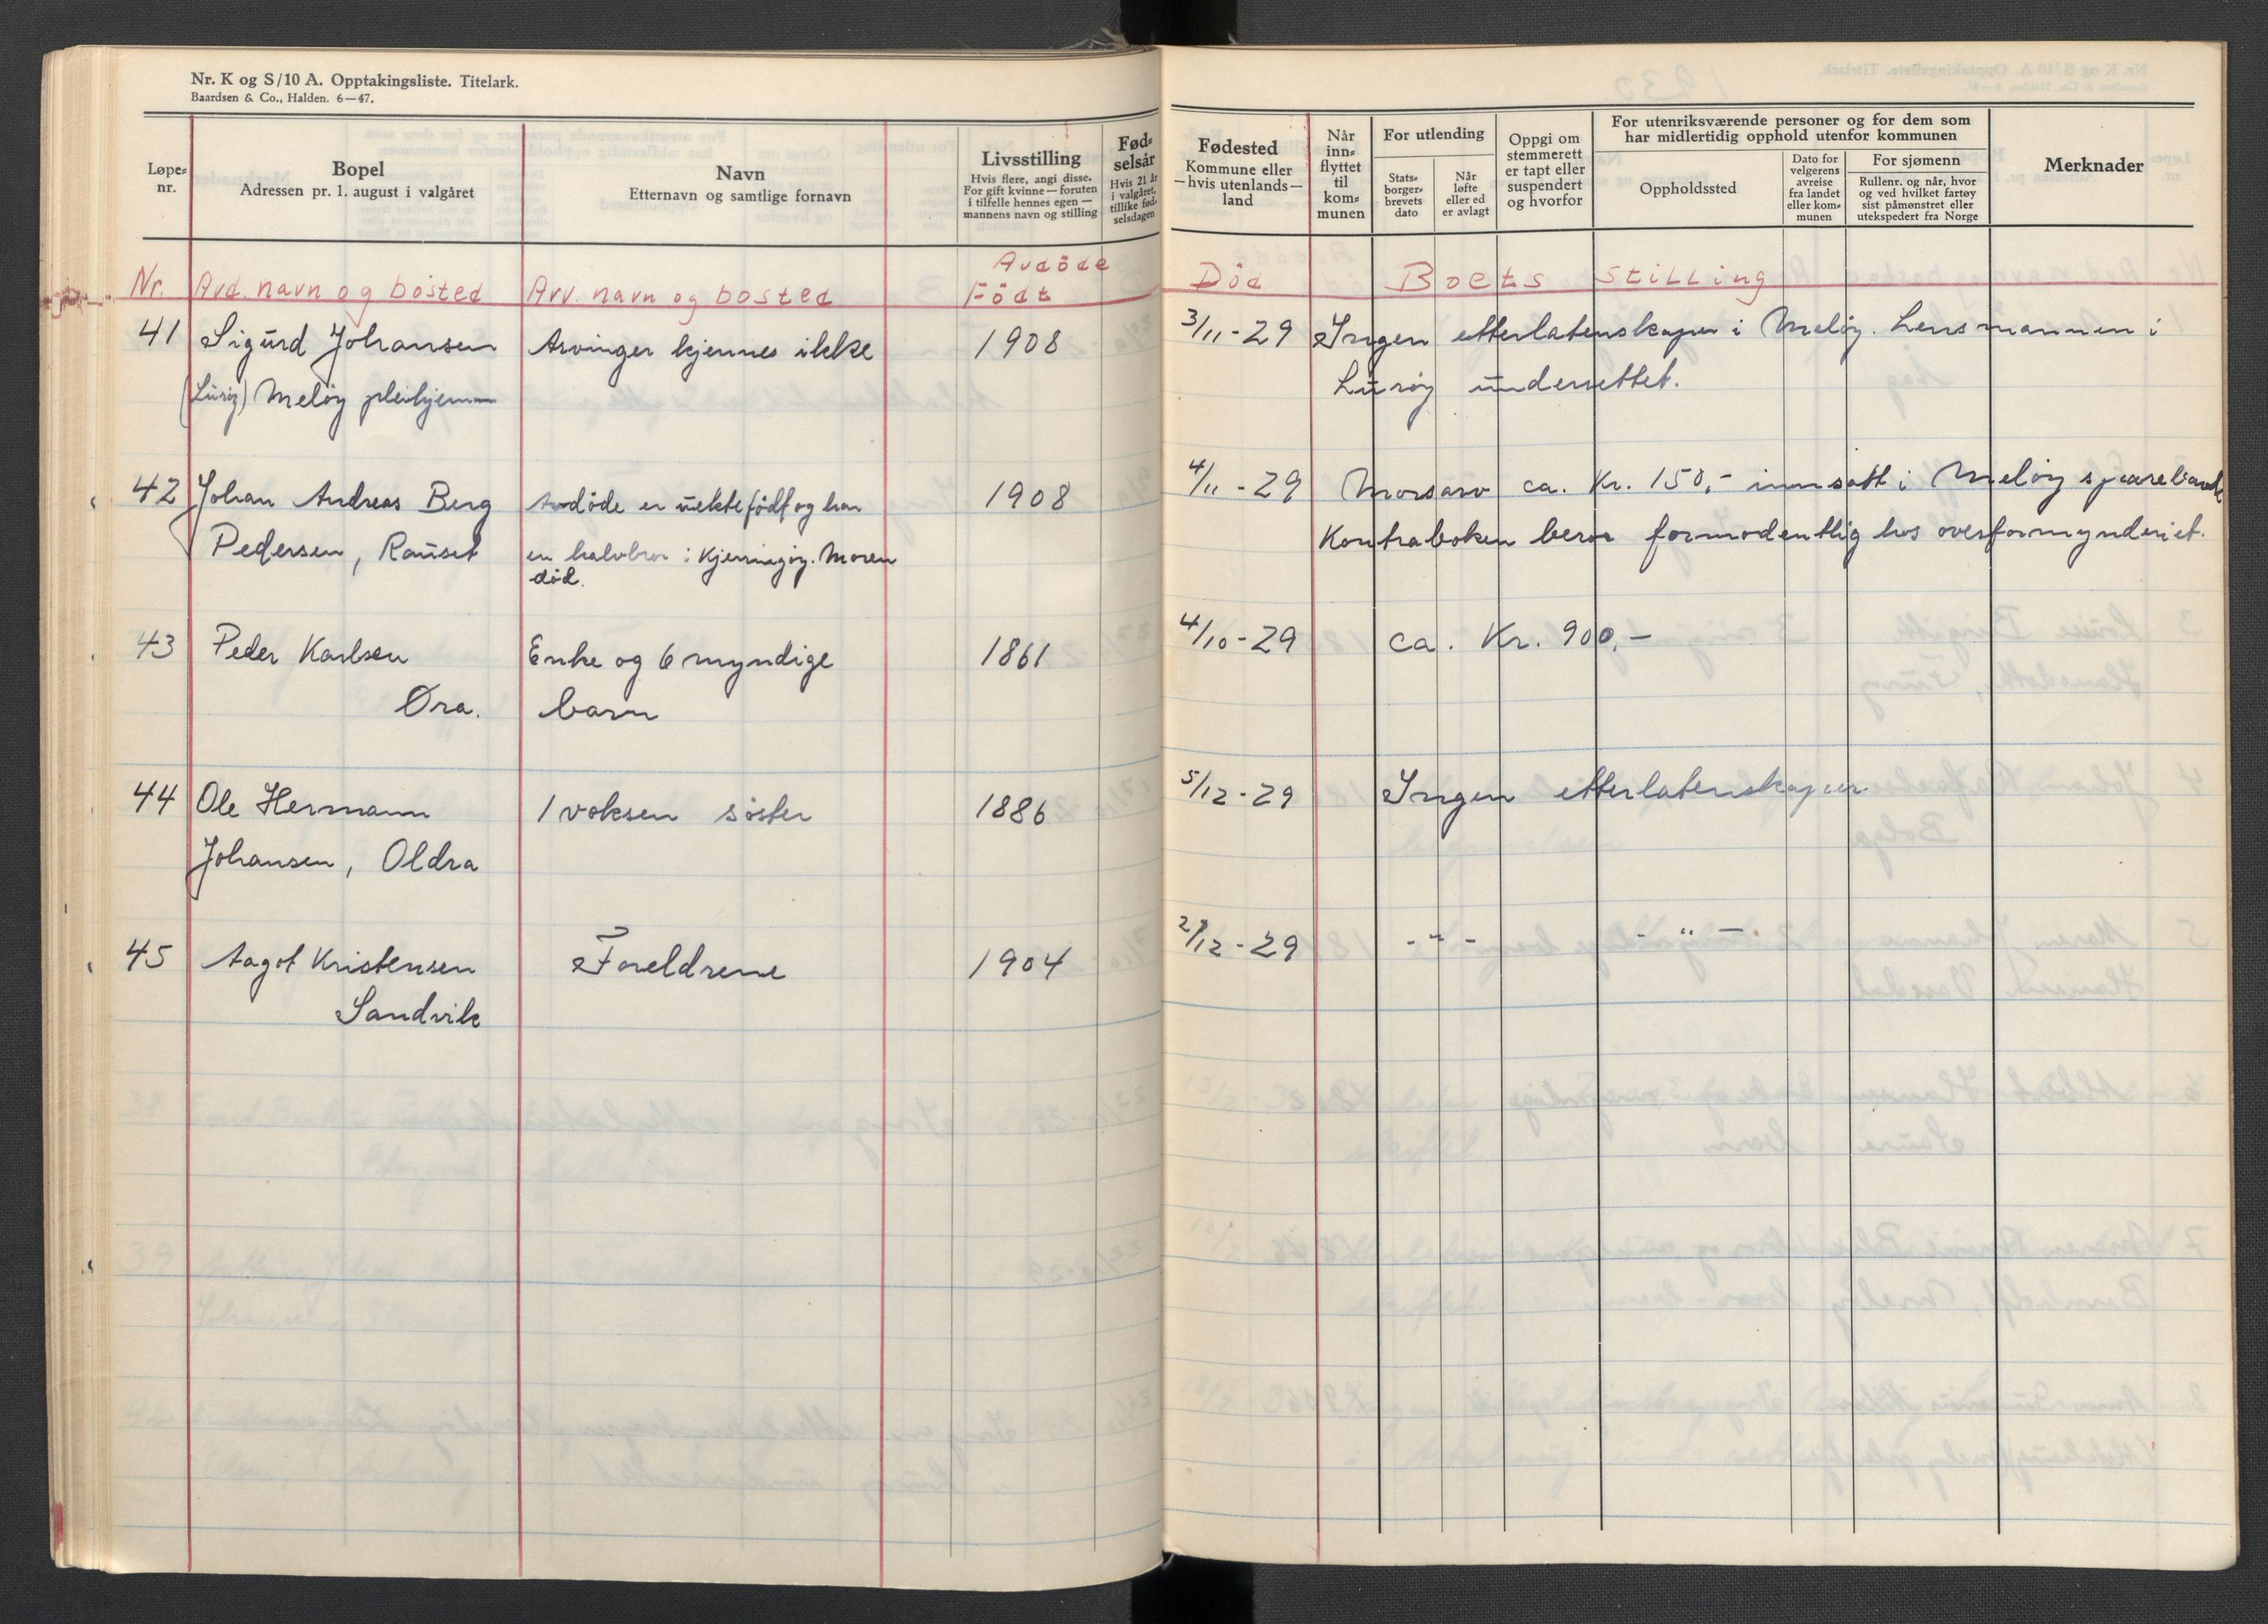 Nr. K og S/10 A. Opptakingsliste. Titelark.
Baardsen & Co., Halden. 6—47.
Løpe-
nr.
Bopel
Adressen pr. 1. august i valgåret
Navn
Etternavn og samtlige fornavn
Livsstilling
Hvis flere, angi disse.
For gift kvinne — foruten
i tilfelle hennes egen —
mannens navn og stilling
Fød-
selsår
Hvis 21 år
i valgåret,
tillike fød-
selsdagen
Fødested
Kommune eller
— hvis utenlands —
land
Når
inn-
flyttet
til
kom-
munen
For utlending
Stats-
borger-
brevets
dato
Når
løfte
eller ed
er avlagt
Oppgi om
stemmerett
er tapt eller
suspendert
og hvorfor
For utenriksværende personer og for dem som
har midlertidig opphold utenfor kommunen
Oppholdssted
Dato for
velgerens
avreise
fra landet
eller kom-
munen
For sjømenn
Rullenr. og når, hvor
og ved hvilket fartøy
sist påmønstret eller
utekspedert fra Norge
Merknader
Nr. Avd. navn og bosted Arv. navn og bosted Avdöde
Födt Död Boets stilling
41 Sigurd Johansen Arvinger kjennes ikke 1908 3/11-29 Ingen etterlatenskaper i Meløy. Lensmannen i
(Lurøy) Meløy pleihjem Lurøy underrettet.
42 Johan Andreas Berg Avdöde er uekte født og har 1908 4/11-29 Morsarv ca. Kr. 150,- innsatt i Meløy sparebank
Pedersen, Rauset en halvbror i Kjerringøy. Moren Kontraboken beror formodentlig hos overformynderiet.
död.
43 Peder Karlsen Enke og 6 myndige 1861 4/10-29 ca. Kr. 900,-
Øra. barn
44 Ole Hermann 1 voksen søster 1886 5/12-29 Ingen etterlatenskaper
Johansen, Oldra
45 Aagot Kristensen Foreldrene 1904 /12-29 - " - - " -
Sandvik